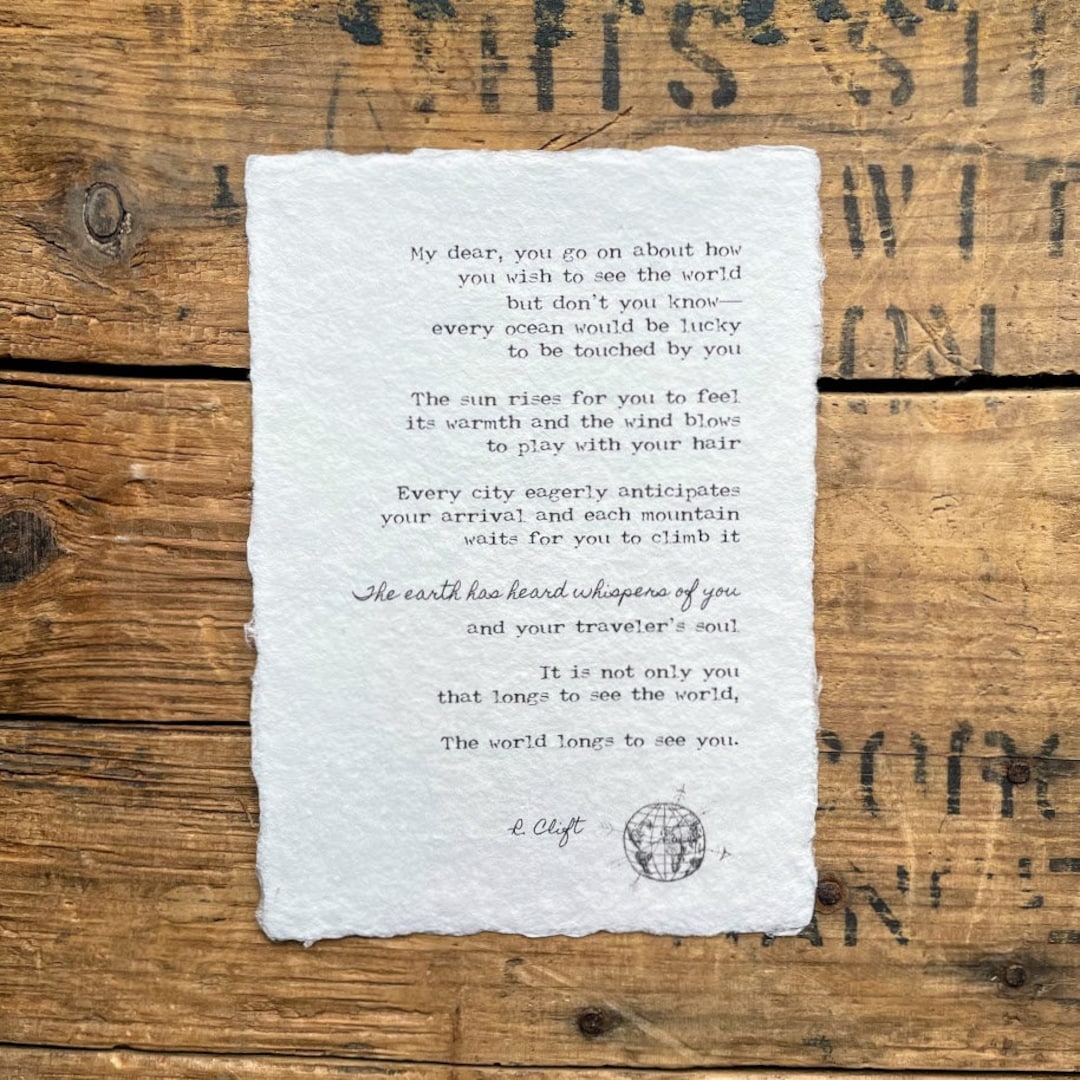 WIT
My dear, you go on about how
you wish to see the world
but don't you know—
every ocean would be lucky
to be touched by you
The sun rises for you to feel
its warmth and the wind blows
to play with your hair
Every city eagerly anticipates
your arrival and each mountain
waits for you to climb it
The earth has heard whispers of you
and your traveler's soul
It is not only you
that longs to see the world,
The world longs to see you.
R. Clift